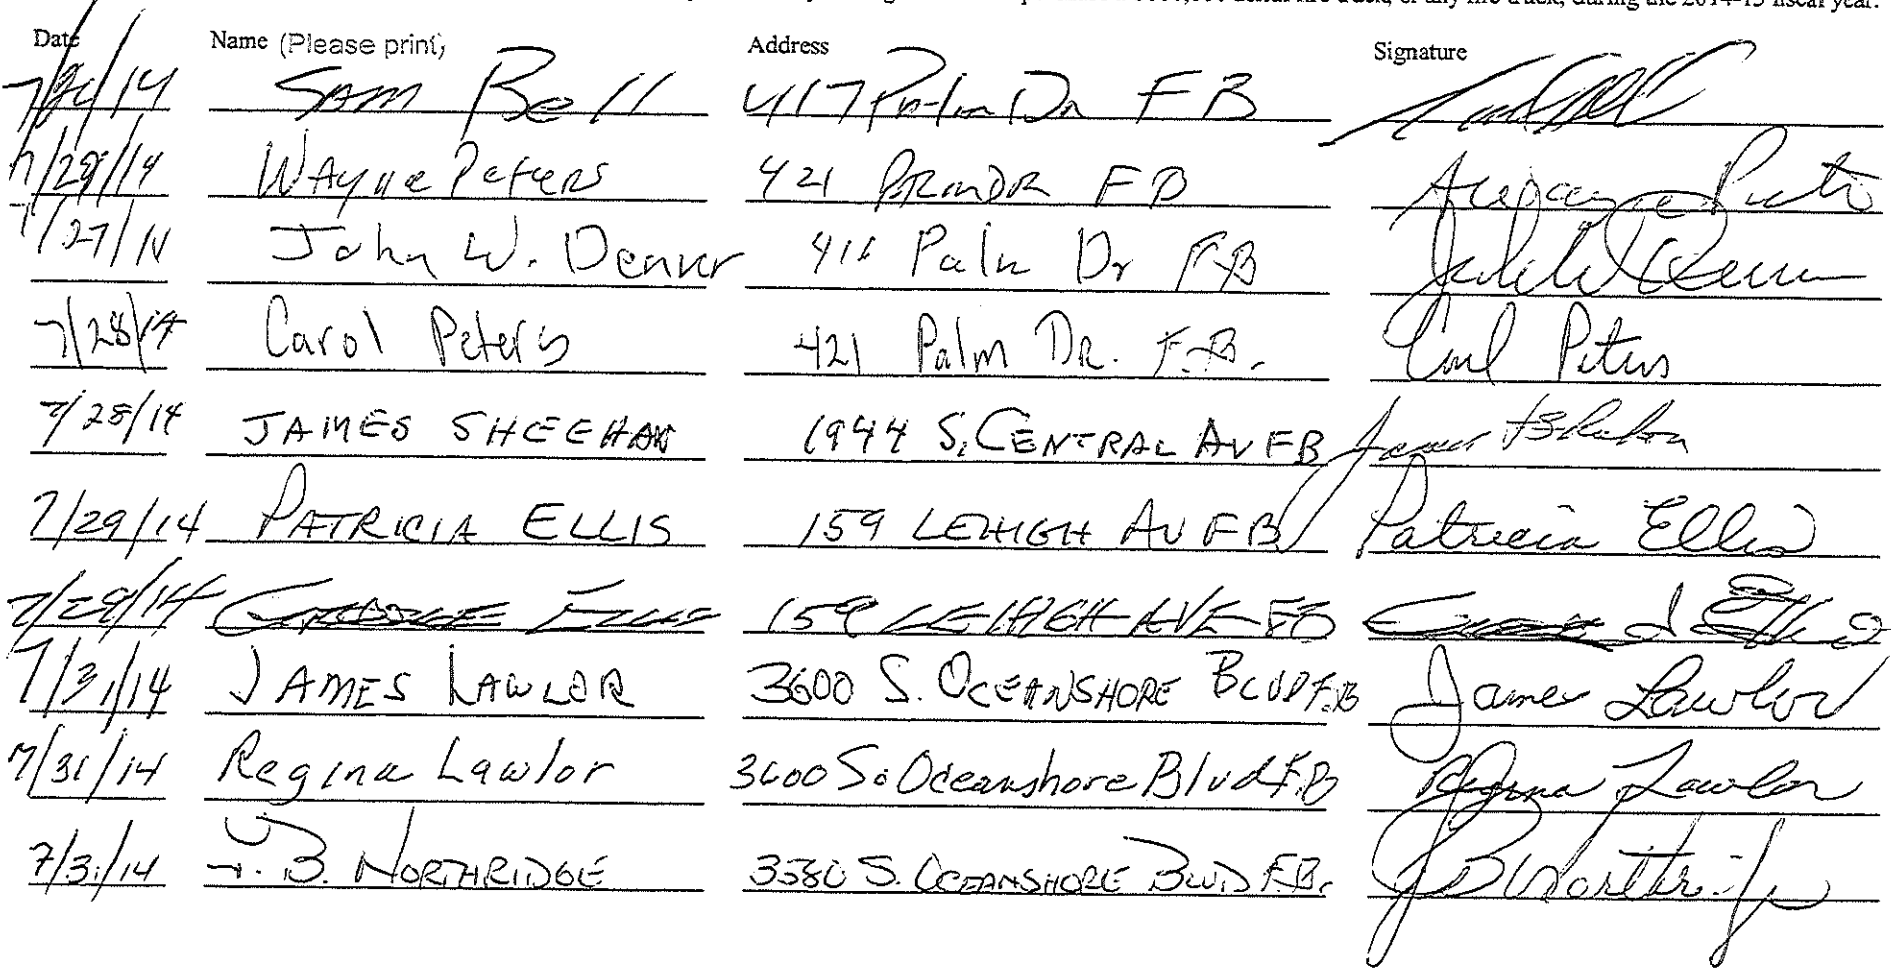 aerial fire truck, or any fire truck, during the 2014-15 fiscal year.
Date Name (Please print) Address Signature
7/26/14 SAM Bell 417 Palm Dr FB
7/29/14 WAyne Peters 421 PALM DR FB
7/27/14 John W. Denver 416 Palm Dr FB
7/28/14 Carol Peters 421 Palm DR. F.B. Carol Peters
7/28/14 JAMES SHEEHAN 1944 S. CENTRAL AV FB
7/29/14 PATRICIA ELLIS 159 LEHIGH AV FB Patricia Ellis
7/29/14 ELLIS 159 LEHIGH AVE FB
7/31/14 JAMES LAWLOR 3600 S. OCEANSHORE BLVD F.B James Lawlor
7/31/14 Regina Lawlor 3600 So Oceanshore Blvd F.B Regina Lawlor
7/31/14 J. B. NORTHRIDGE 3580 S. OCEANSHORE BLVD F.B. JB Northridge